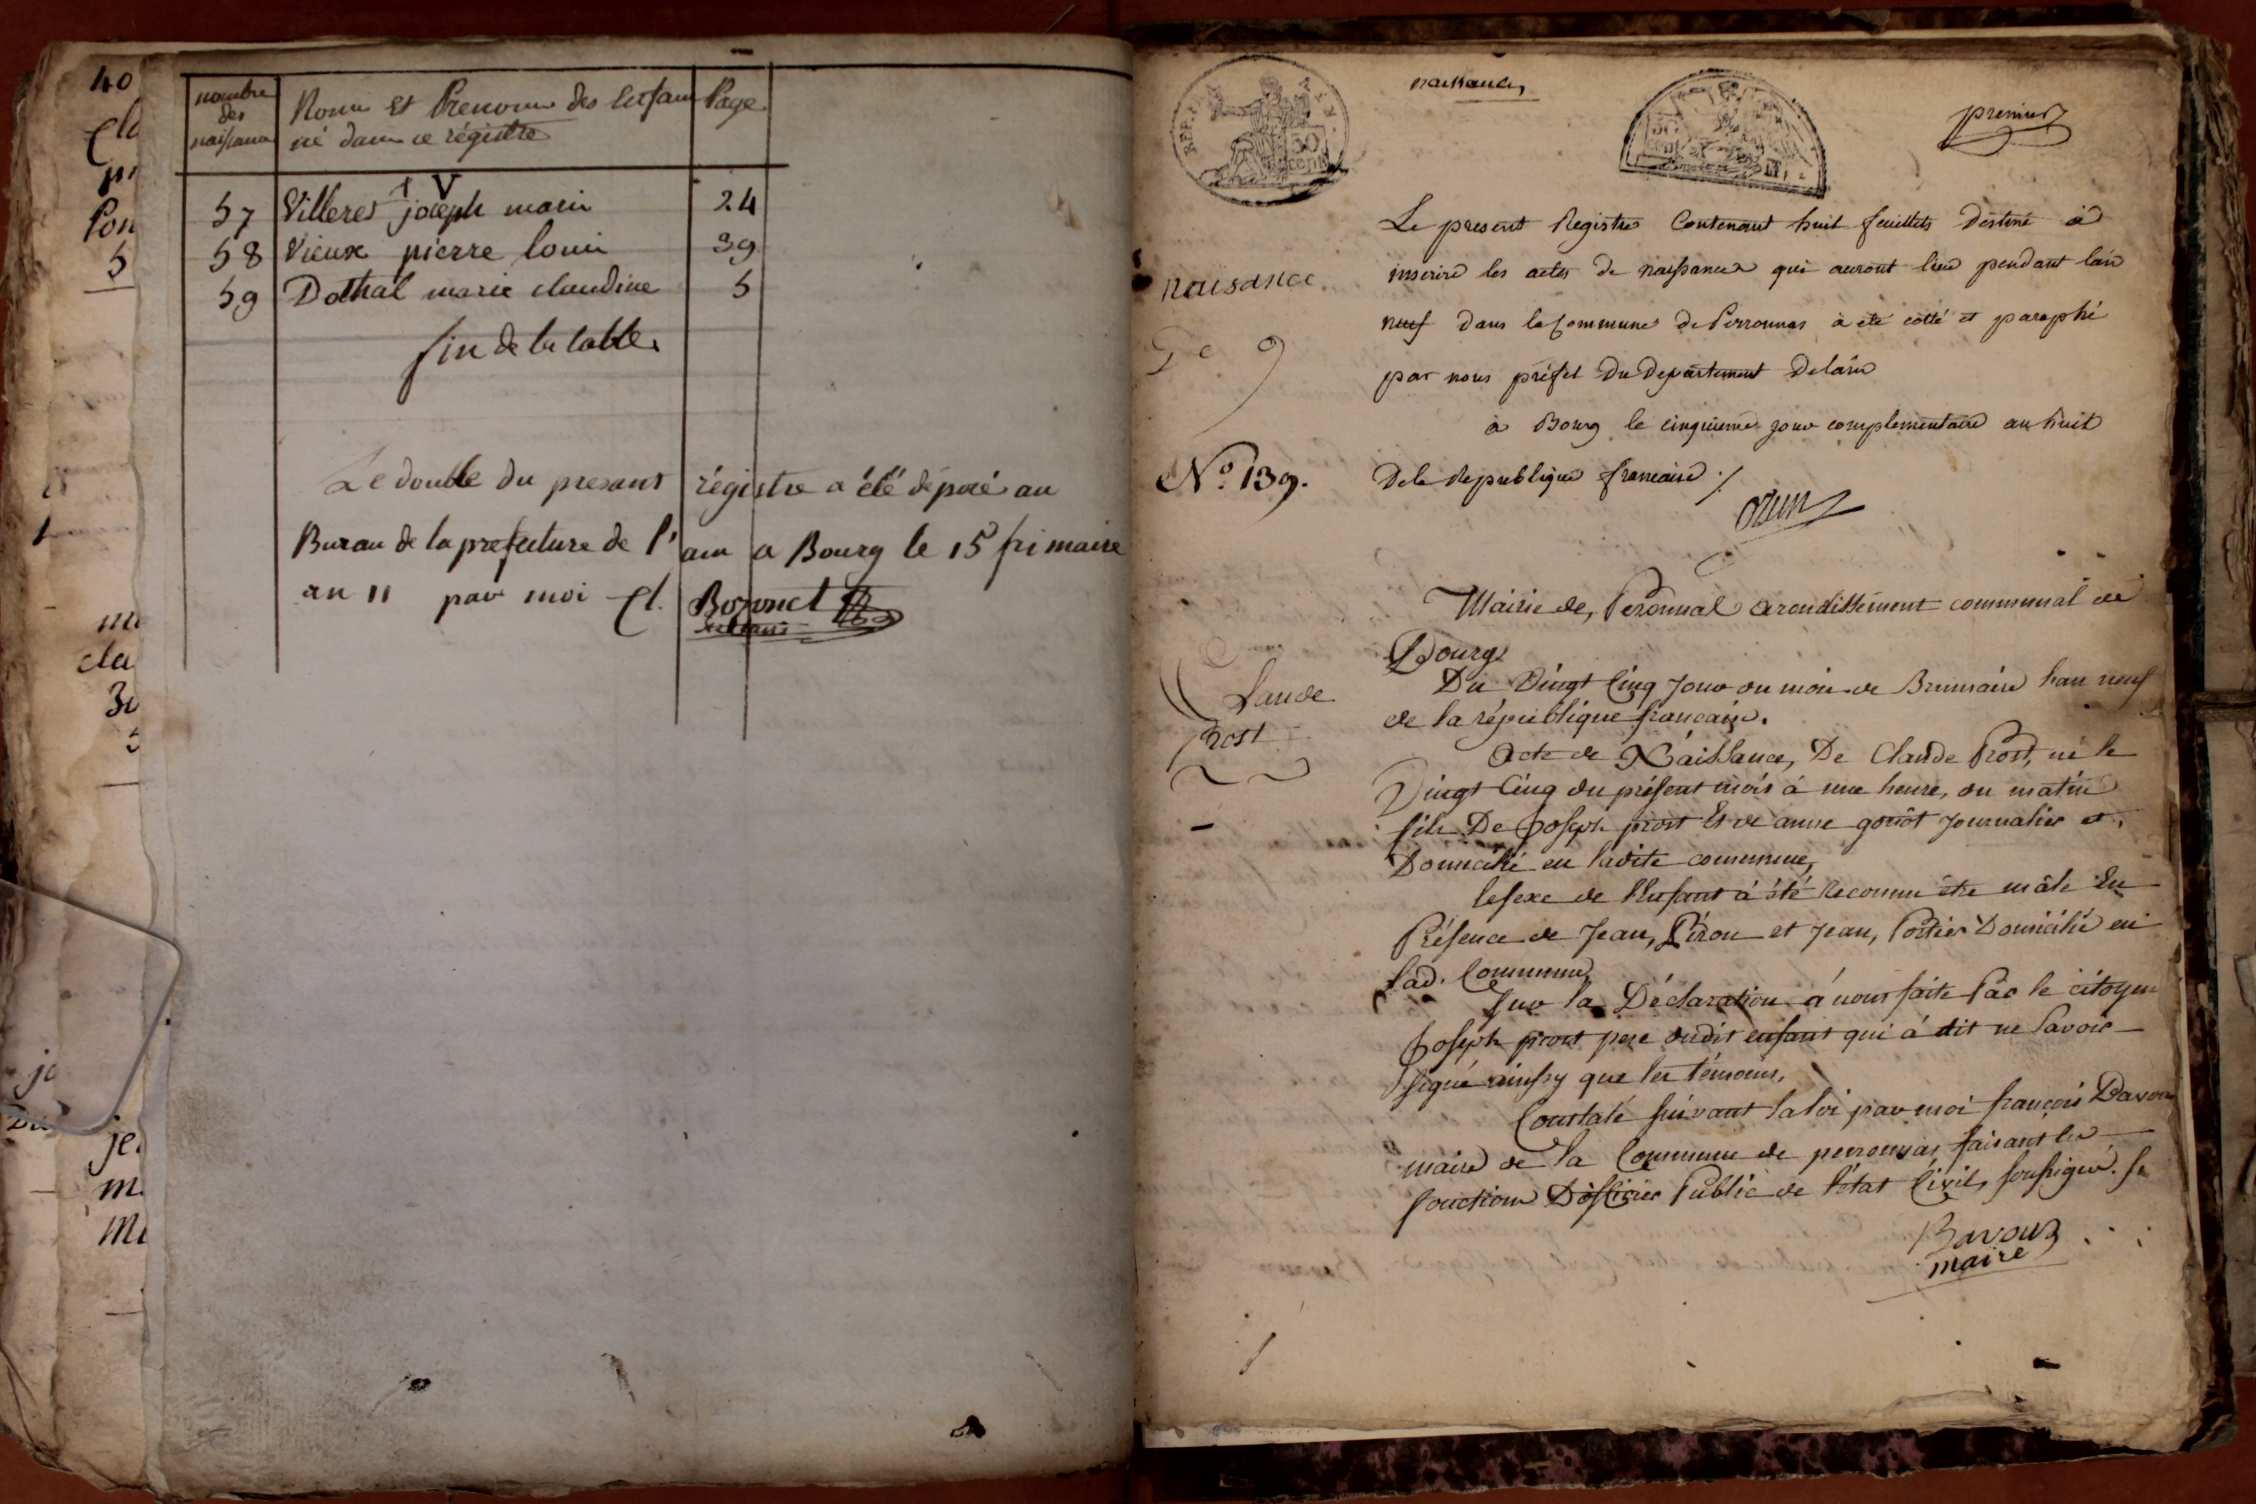 40
nombre
des
naissance
Noms et Prenoms des Enfans
né dans ce régistre
Page
57 Villeret joseph marie 24
58 Vieux pierre louis 39
59 Dothal marie claudine 5
fin de la table.
Le double du presant régistre a été déposé au
Bureau de la prefecture de l'ain a Bourg le 15 frimaire
an 11 par moi Cl. Bozonet
naissances
premier
REP.
50
cent
Le present Registre Contenant huit feuillets destiné à
inscrire les actes de naissances qui auront lieu pendant l'an
neuf dans la Commune de Perronnas à été cotté et paraphé
par nous préfet Du Departement Delain
à Bourg le cinquieme jour complementaire an huit
De la Republique francaise ./.
Ozun
naisance
9
No. 139.
Mairie de, Peronnas arondissement communal de
Bourg
Du Vingt Cinq Jour du mois de Brumaire l'an neuf
de la république française.
Claude
Prost
Acte de Naissance, De Claude Prost, né le
Vingt Cinq du présent mois à une heure, du matin
fils De Joseph prost Et de anne goriot Journalier et
Domicilié en ladite commune,
le sexe de l'Enfant à été Reconnu être mâle En
Présence de Jean, Piron et Jean, Portier Domicilié en
lad. Commune
Sur la Déclaration à nous faite Par le citoyen
Joseph prost pere dudit enfant qui à dit ne Savoir
signé ainssy que les témoins,
Constaté suivant la loi par moi françois Bavoux
maire de la Commune de perronnas faisant les
fonctions D'officier Public de l'état Civil, soussigné.
Bavoux
maire